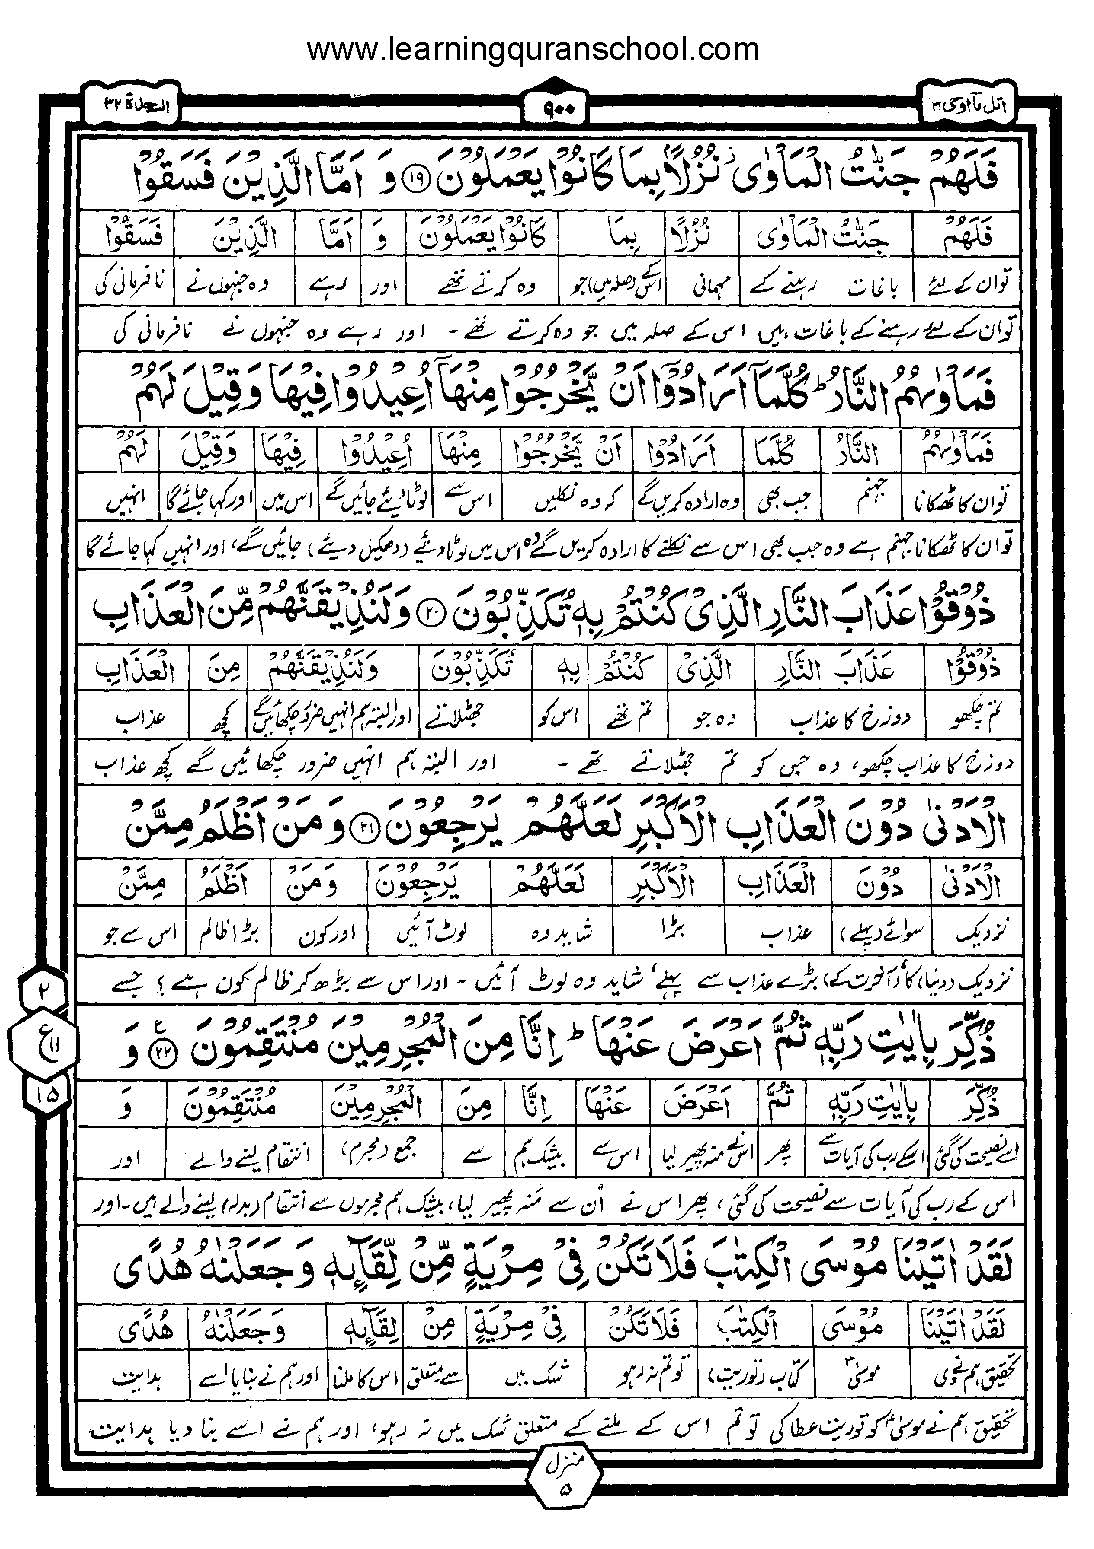 www.learningquranschool.com
اتل مآ اوحی ۲۱
۹۰۰
السجدة ۳۲
فَلَهُمْ جَنّٰتُ الْمَاْوٰى ۡ نُزُلًۢا بِمَا كَانُوْا يَعْمَلُوْنَ ۱۹ وَ اَمَّا الَّذِيْنَ فَسَقُوْا
فَلَهُمْ جَنّٰتُ الْمَاْوٰى نُزُلًۢا بِمَا كَانُوْا يَعْمَلُوْنَ وَ اَمَّا الَّذِيْنَ فَسَقُوْا
تو ان کے لئے باغات رہنے کے مہمانی اسکے (صلہ میں) جو وہ کرتے تھے اور رہے وہ جنہوں نے نافرمانی کی
تو ان کے لئے رہنے کے باغات ہیں اس کے صلہ میں جو وہ کرتے تھے - اور رہے وہ جنہوں نے نافرمانی کی
فَمَاْوٰىهُمُ النَّارُ ؕ كُلَّمَاۤ اَرَادُوْۤا اَنْ يَّخْرُجُوْا مِنْهَاۤ اُعِيْدُوْا فِيْهَا وَقِيْلَ لَهُمْ
فَمَاْوٰىهُمُ النَّارُ كُلَّمَا اَرَادُوْۤا اَنْ يَّخْرُجُوْا مِنْهَا اُعِيْدُوْا فِيْهَا وَقِيْلَ لَهُمْ
تو ان کا ٹھکانا جہنم جب بھی وہ ارادہ کریں گے کہ وہ نکلیں اس سے لوٹا دیئے جائیں گے اس میں اور کہا جائے گا انہیں
تو ان کا ٹھکانا جہنم ہے وہ جب بھی اس سے نکلنے کا ارادہ کریں گے وہ اس میں لوٹا دیئے (دھکیل دیئے) جائیں گے، اور انہیں کہا جائے گا
ذُوْقُوْا عَذَابَ النَّارِ الَّذِيْ كُنْتُمْ بِهٖ تُكَذِّبُوْنَ ۲۰ وَلَنُذِيْقَنَّهُمْ مِّنَ الْعَذَابِ
ذُوْقُوْا عَذَابَ النَّارِ الَّذِيْ كُنْتُمْ بِهٖ تُكَذِّبُوْنَ وَلَنُذِيْقَنَّهُمْ مِنَ الْعَذَابِ
تم چکھو دوزخ کا عذاب وہ جو تم تھے اس کو جھٹلاتے اور البتہ ہم انہیں ضرور چکھائیں گے کچھ عذاب
دوزخ کا عذاب چکھو، وہ جس کو تم جھٹلاتے تھے - اور البتہ ہم انہیں ضرور چکھائیں گے کچھ عذاب
الْاَدْنٰى دُوْنَ الْعَذَابِ الْاَكْبَرِ لَعَلَّهُمْ يَرْجِعُوْنَ ۲۱ وَ مَنْ اَظْلَمُ مِمَّنْ
الْاَدْنٰى دُوْنَ الْعَذَابِ الْاَكْبَرِ لَعَلَّهُمْ يَرْجِعُوْنَ وَمَنْ اَظْلَمُ مِمَّنْ
نزدیک سوائے (پہلے) عذاب بڑا شاید وہ لوٹ آئیں اور کون بڑا ظالم اس سے جو
نزدیک (دنیا) کا (آخرت کے) بڑے عذاب سے پہلے، شاید وہ لوٹ آئیں - اور اس سے بڑھ کر ظالم کون ہے؟ جسے
ذُكِّرَ بِاٰيٰتِ رَبِّهٖ ثُمَّ اَعْرَضَ عَنْهَا ؕ اِنَّا مِنَ الْمُجْرِمِيْنَ مُنْتَقِمُوْنَ ۲۲ وَ
ذُكِّرَ بِاٰيٰتِ رَبِّهٖ ثُمَّ اَعْرَضَ عَنْهَا اِنَّا مِنَ الْمُجْرِمِيْنَ مُنْتَقِمُوْنَ وَ
اسے نصیحت کی گئی اسکے رب کی آیات سے پھر اس نے منہ پھیر لیا اس سے بیشک ہم سے جمع (مجرم) انتقام لینے والے اور
اس کے رب کی آیات سے نصیحت کی گئی، پھر اس نے اُن سے مُنہ پھیر لیا، بیشک ہم مجرموں سے انتقام (بدلہ) لینے والے ہیں - اور
لَقَدْ اٰتَيْنَا مُوْسَى الْكِتٰبَ فَلَا تَكُنْ فِيْ مِرْيَةٍ مِّنْ لِّقَآئِهٖ وَ جَعَلْنٰهُ هُدًى
لَقَدْ اٰتَيْنَا مُوْسَى الْكِتٰبَ فَلَا تَكُنْ فِيْ مِرْيَةٍ مِنْ لِقَآئِهٖ وَجَعَلْنٰهُ هُدًى
تحقیق ہم نے دی موسیٰؑ کتاب (توریت) تو تم نہ رہو شک میں سے متعلق اس کا ملنا اور ہم نے بنایا اسے ہدایت
تحقیق ہم نے موسیٰؑ کو توریت عطا کی تو تم اس کے ملنے کے متعلق شک میں نہ رہو، اور ہم نے اسے بنا دیا ہدایت
۲
ع ۱۱
۱۵
منزل ۵